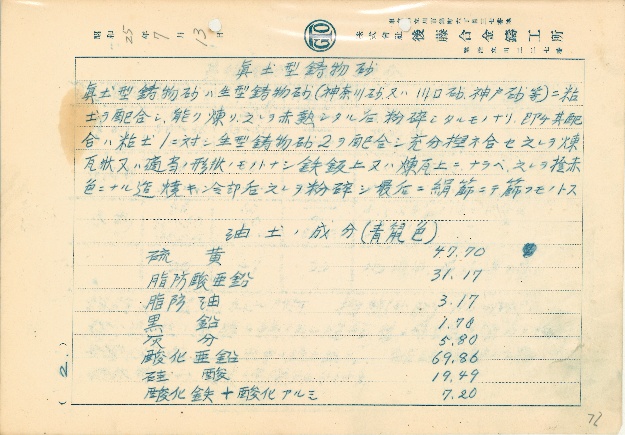 昭和25年7月13日
株式会社 後藤合金鋳工所
眞土型鋳物砂
眞土型鋳物砂ハ生型鋳物砂(神奈川砂又ハ川口砂、神戸砂等)ニ粘
土ヲ配合シ、能ク煉リ、之レヲ赤熱シタル后粉碎シタルモノナリ、即チ其配
合ハ粘土1ニ対シ生型鋳物砂2ヲ配合シ充分揑子合セ之レヲ煉
瓦状又ハ適当ノ形状ノモノトナシ鉄鈑上又ハ煉瓦上ニナラベ、之レヲ桧赤
色ニナル迄焼キ、冷却后之レヲ粉碎シ最后ニ絹篩ニテ篩フモノトス
油土ノ成分(青鼠色)
硫黄 47.70
脂肪酸亜鉛 31.17
脂肪油 3.17
黒鉛 1.70
灰分 5.80
酸化亜鉛 69.86
硅酸 19.49
酸化鉄+酸化アルミ 7.20
(2.)
72